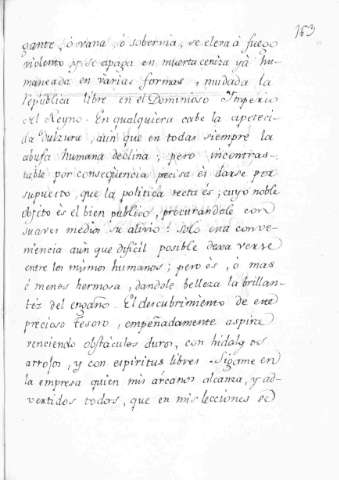 153
gante, ó vana, ó sobervia, se eleva à fuego
violento, ò se apaga en muerta ceniza yà hu-
maneada en varias formas, mudada la
republica libre en el Dominioso Imperio
del Reyno. En qualquiera cabe la apeteci-
da dulzura, aùn que en todas siempre la
abusa humana declina; pero incontras-
table por conseqüencia precisa es darse por
supuesto, que la politica recta ès; cuyo noble
objeto ès el bien publico, procurandole con
suaves medios su alivio: solo una conve-
niencia aùn que dificil posible deva verse
entre los mismos humanos; pero ès, ò mas
ò menos hermosa, dandole belleza la brillan-
téz del engaño. El descubrimiento de este
precioso tesoro, empeñadamente aspira
venciendo obstàculos duros, con hidalgos
arrojos, y con espiritus libres. Sigame en
la empresa quien mis arcanos alcanza, y ad-
vertidos todos, que en mis lecciones se